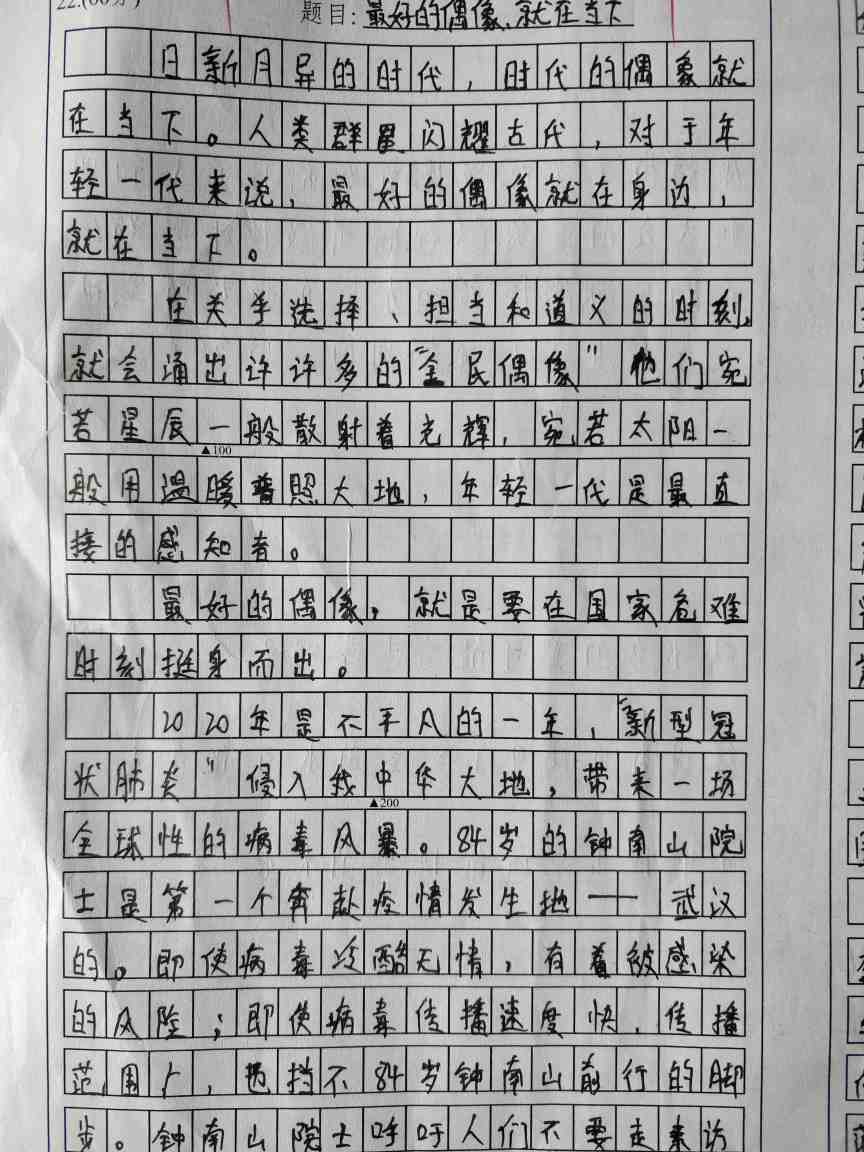 22.(60分)
题目：最好的偶像，就在当下
日新月异的时代，时代的偶象就
在当下。人类群星闪耀古代，对于年
轻一代来说，最好的偶像就在身边，
就在当下。
在关乎选择、担当和道义的时刻，
就会涌出许许多多的"全民偶像"他们宛
若星辰一般散射着光辉，宛若太阳一
▲100
般用温暖普照大地，年轻一代是最直
接的感知者。
最好的偶像，就是要在国家危难
时刻挺身而出。
2020年是不平凡的一年，"新型冠
状肺炎"侵入我中华大地，带来一场
▲200
全球性的病毒风暴。84岁的钟南山院
士是第一个奔赴疫情发生地——武汉
的。即使病毒冷酷无情，有着被感染
的风险；即使病毒传播速度快，传播
范围广，也挡不84岁钟南山前行的脚
步。钟南山院士呼吁人们不要走亲访